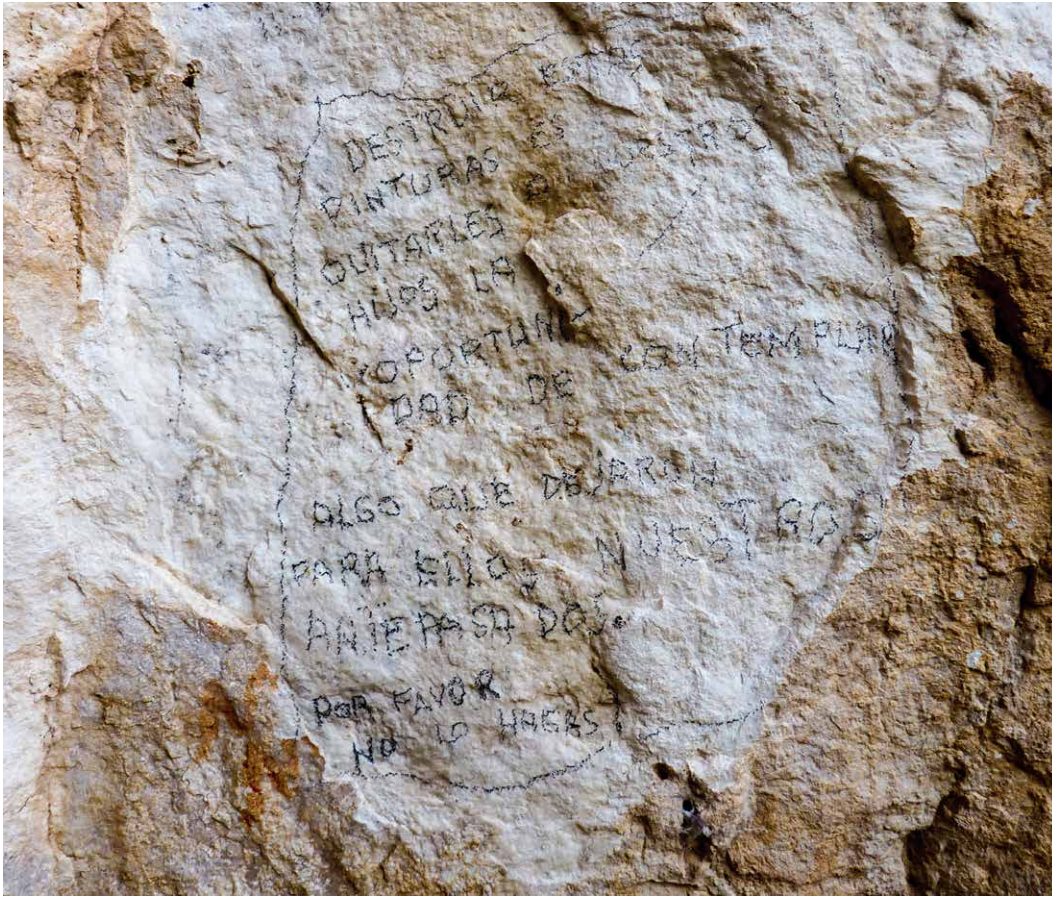 DESTRUIR ESTAS
PINTURAS ES
QUITARLES A NUESTROS
HIJOS LA
OPORTUNI
DAD DE CONTEMPLAR
ALGO QUE DEJARON
PARA ELLOS NUESTROS
ANTEPASADOS.
POR FAVOR
NO LO HAGAS